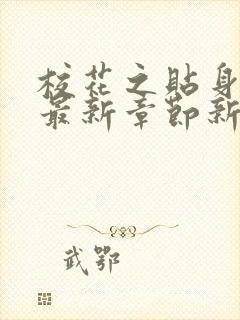 校花之貼身
最新章節新
武鄂